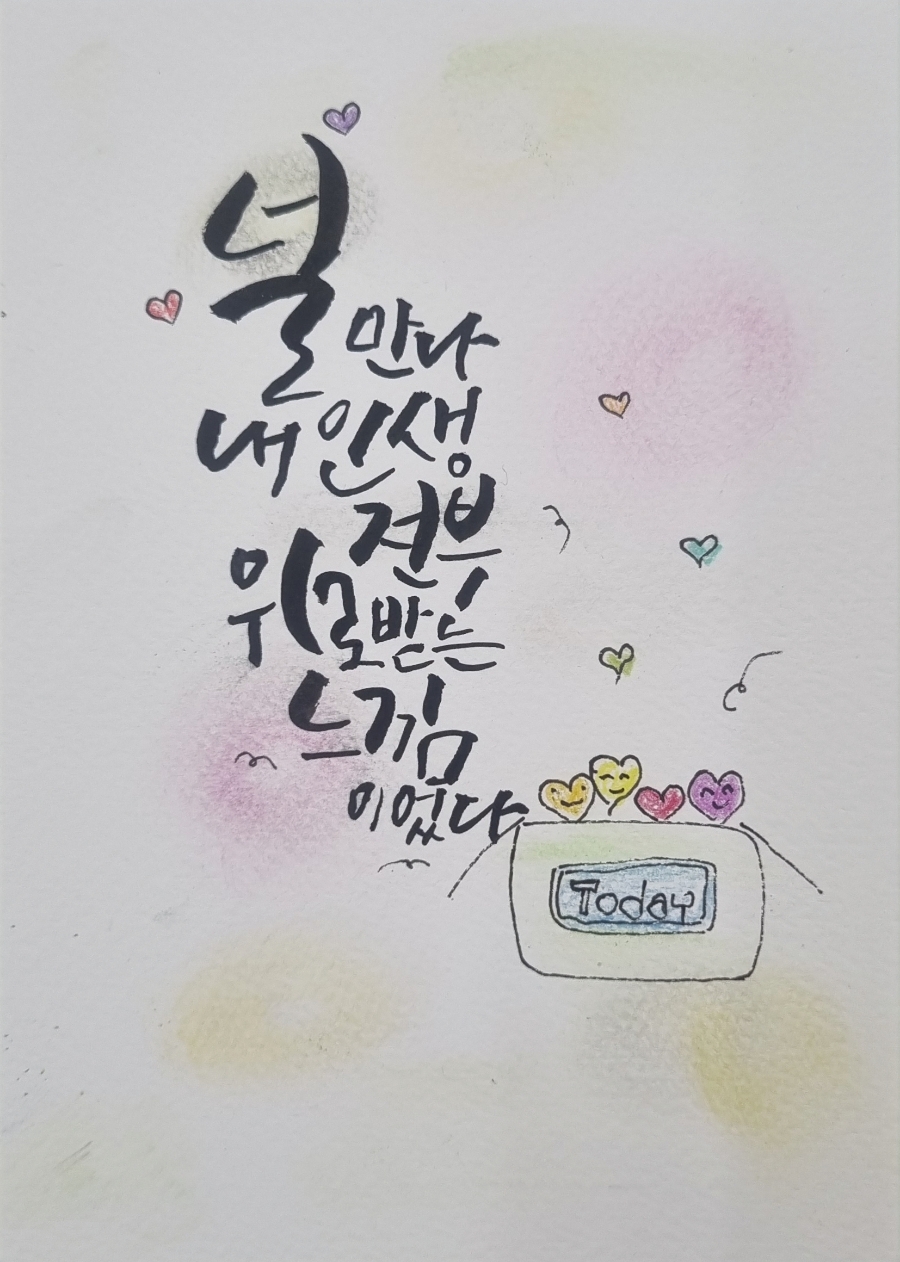 널
만나
내 인생
전부
위로받는
느낌
이었다
Today